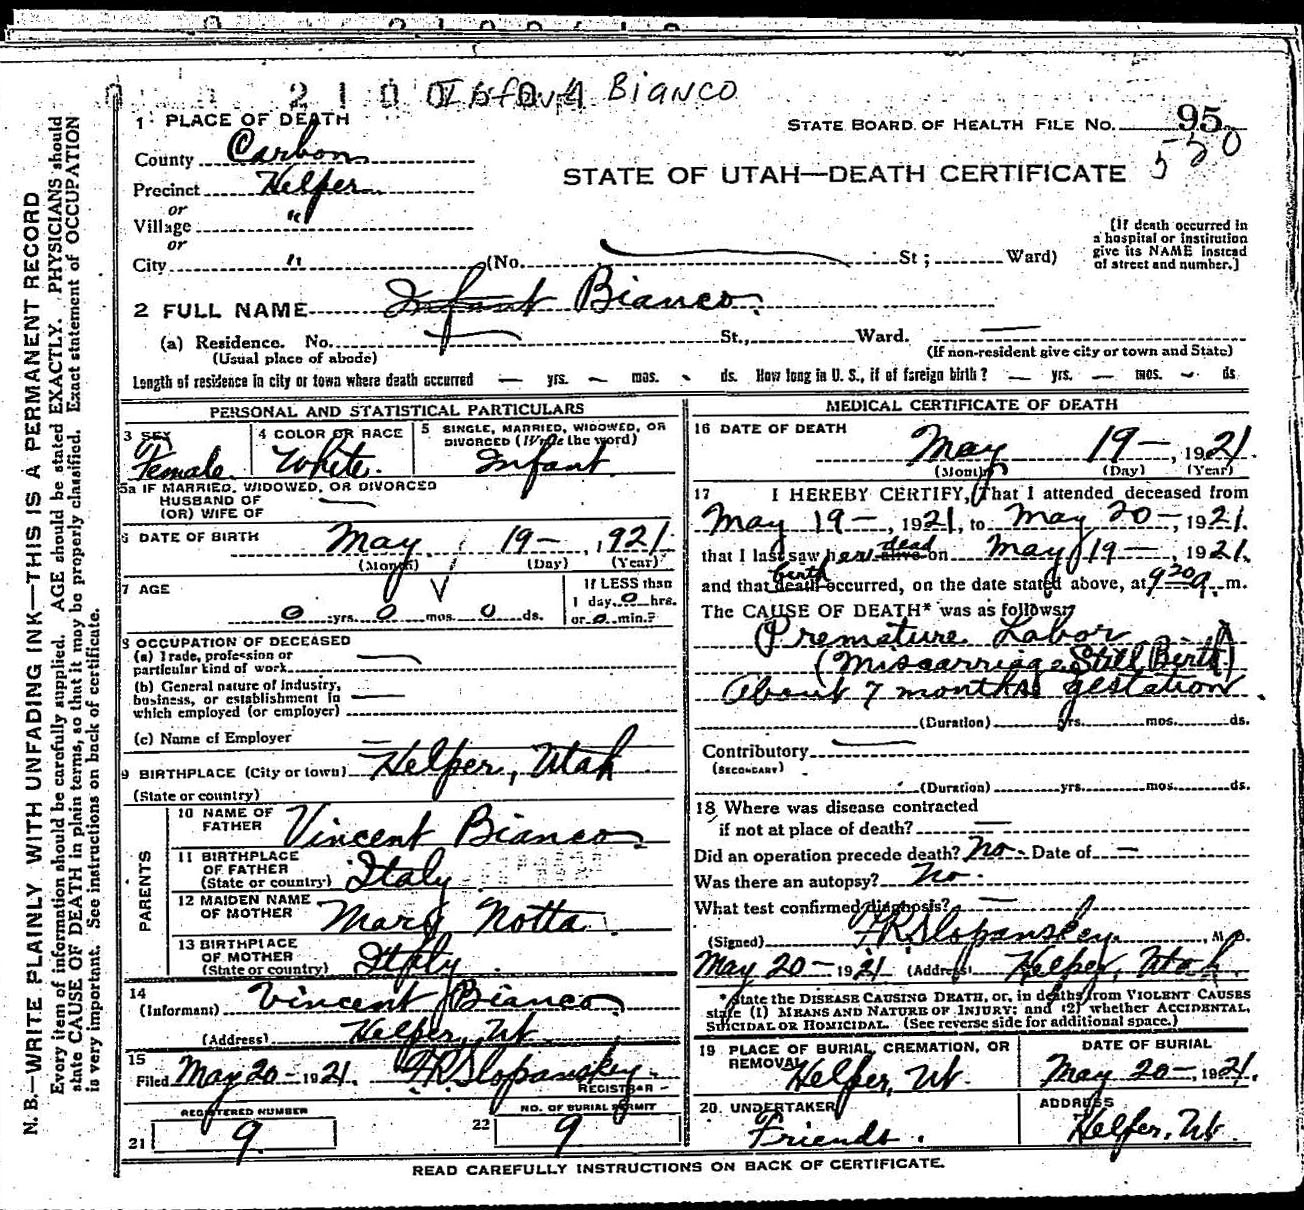 Infant Bianco
1 PLACE OF DEATH
STATE BOARD OF HEALTH FILE NO. 95
520
County Carbon
STATE OF UTAH—DEATH CERTIFICATE
Precinct Helper
or
Village "
or
City " (No. St; Ward)
[If death occurred in
a hospital or institution
give its NAME instead
of street and number.]
2 FULL NAME Infant Bianco.
(a) Residence. No. St., Ward.
(Usual place of abode) (If non-resident give city or town and State)
Length of residence in city or town where death occurred — yrs. — mos. - ds. How long in U. S., if of foreign birth? — yrs. — mos. — ds
PERSONAL AND STATISTICAL PARTICULARS
3 SEX
Female
4 COLOR OR RACE
White.
5 SINGLE, MARRIED, WIDOWED, OR
DIVORCED (Write the word)
Infant
5a IF MARRIED, WIDOWED, OR DIVORCED
HUSBAND OF
(OR) WIFE OF
6 DATE OF BIRTH May 19—, 1921.
(Month) (Day) (Year)
7 AGE
0 yrs. 0 mos. 0 ds.
If LESS than
1 day, 0 hrs.
or 0 min.?
8 OCCUPATION OF DECEASED
(a) Trade, profession or
particular kind of work
(b) General nature of industry,
business, or establishment in
which employed (or employer)
(c) Name of Employer
9 BIRTHPLACE (City or town) Helper, Utah
(State or country)
PARENTS
10 NAME OF
FATHER Vincent Bianco
11 BIRTHPLACE
OF FATHER
(State or country) Italy
12 MAIDEN NAME
OF MOTHER Mary Notta
13 BIRTHPLACE
OF MOTHER
(State or country) Italy
14
(Informant) Vincent Bianco
(Address) Helper, Ut.
15
Filed May 20— 1921. F.R. Slopanskey
REGISTRAR
REGISTERED NUMBER
21 9
NO. OF BURIAL PERMIT
22 9
MEDICAL CERTIFICATE OF DEATH
16 DATE OF DEATH
May 19—, 1921.
(Month) (Day) (Year)
17 I HEREBY CERTIFY, That I attended deceased from
May 19—, 1921, to May 20—, 1921.
that I last saw her alive dead on May 19—, 1921.
and that death birth occurred, on the date stated above, at 9 30 a. m.
The CAUSE OF DEATH* was as follows:
Premature Labor
(Miscarriage Still Birth)
About 7 months gestation.
(Duration) yrs. mos. ds.
Contributory
(SECONDARY)
(Duration) yrs. mos. ds.
18 Where was disease contracted
if not at place of death? —
Did an operation precede death? No - Date of —
Was there an autopsy? No.
What test confirmed diagnosis? —
(Signed) F.R. Slopanskey, M. D.
May 20— 1921 (Address) Helper, Utah.
*State the DISEASE CAUSING DEATH, or, in deaths from VIOLENT CAUSES
state (1) MEANS AND NATURE OF INJURY; and (2) whether ACCIDENTAL,
SUICIDAL OR HOMICIDAL. (See reverse side for additional space.)
19 PLACE OF BURIAL, CREMATION, OR
REMOVAL
Helper, Ut.
DATE OF BURIAL
May 20—, 1921.
20. UNDERTAKER
Friends.
ADDRESS
Helper, Ut.
READ CAREFULLY INSTRUCTIONS ON BACK OF CERTIFICATE.
N. B.—WRITE PLAINLY WITH UNFADING INK—THIS IS A PERMANENT RECORD
Every item of information should be carefully supplied. AGE should be stated EXACTLY. PHYSICIANS should
state CAUSE OF DEATH in plain terms, so that it may be properly classified. Exact statement of OCCUPATION
is very important. See instructions on back of certificate.